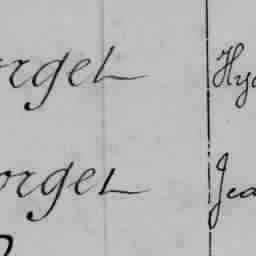 orgel Hya
orgel Jea